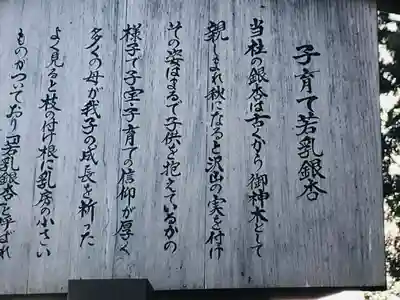 子育て若乳銀杏
当社の銀杏は古くから御神木として
親しまれ秋になると沢山の実を付け
その姿はまるで子供を抱えているかの
様子で子宝・子育ての信仰が厚く
多くの母が我子の成長を祈った
よく見ると枝の付け根に乳房の小さい
ものがついており若乳銀杏と呼ばれ